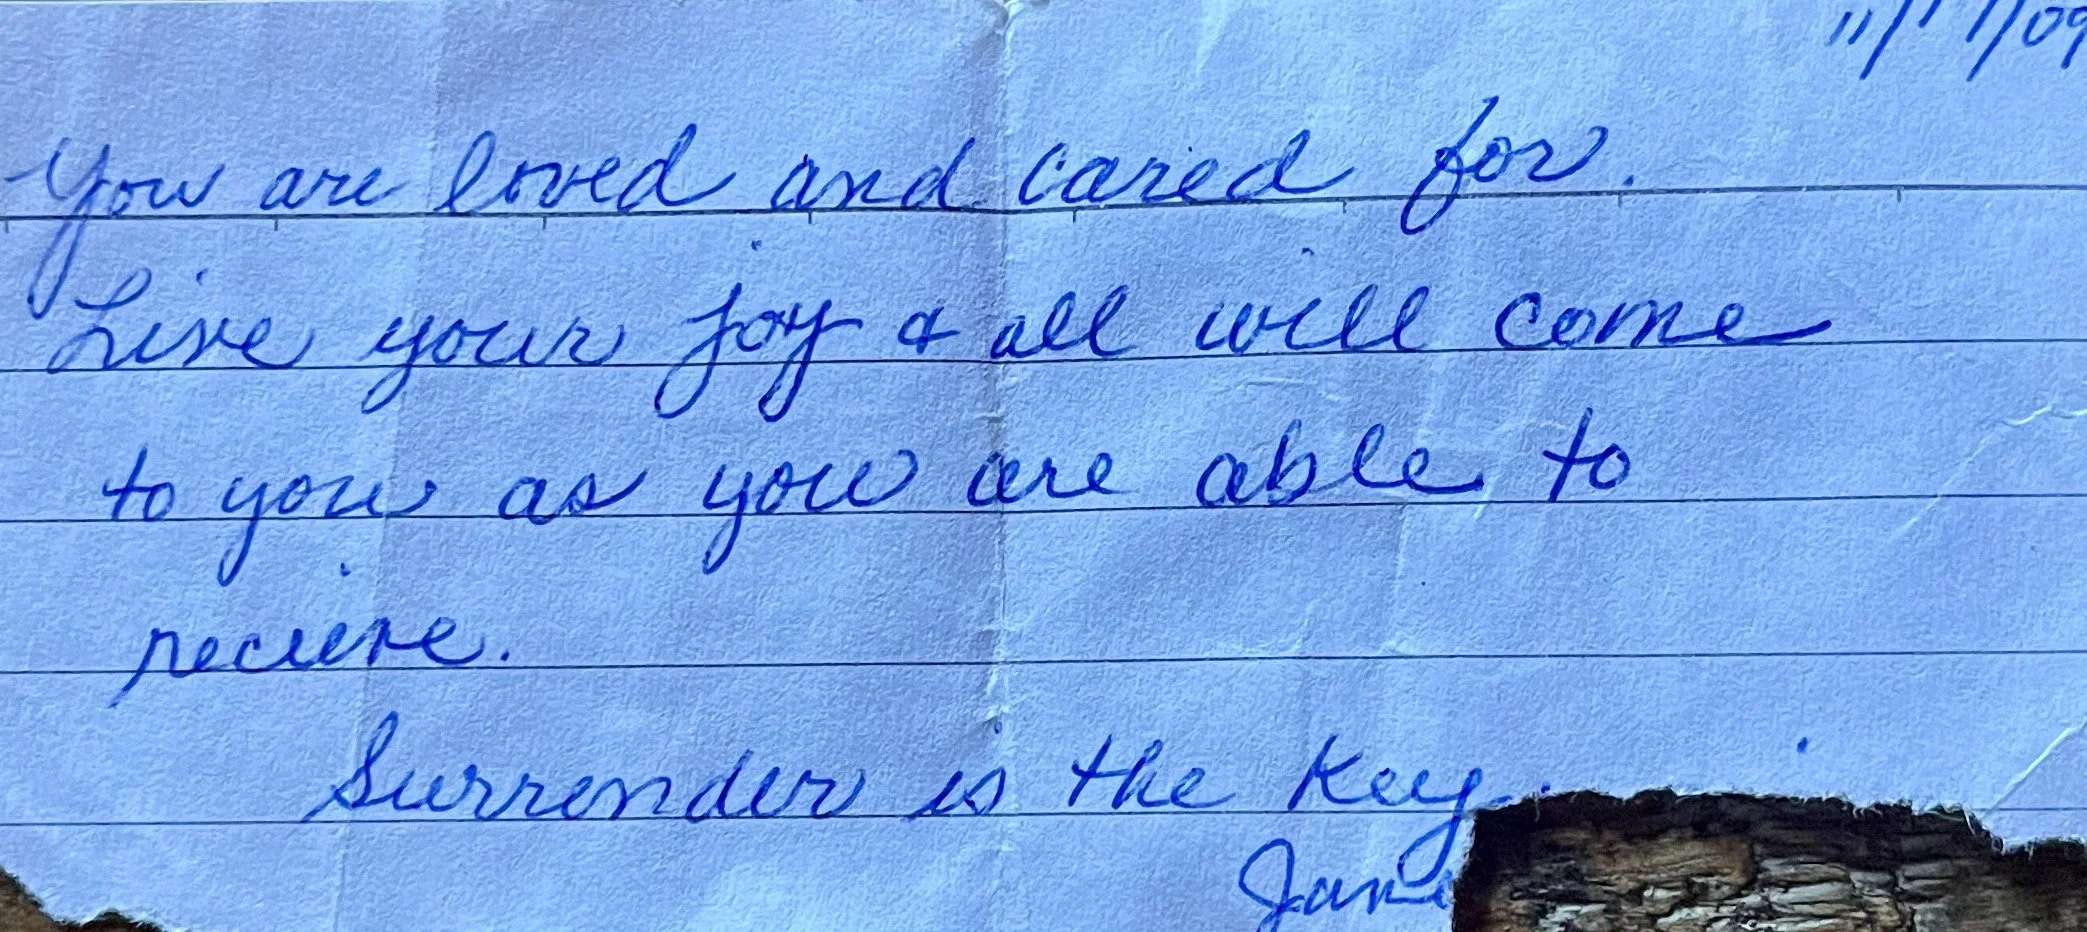 11/17/09
You are loved and cared for.
Live your joy & all will come
to you as you are able to
recieve.
Surrender is the key.